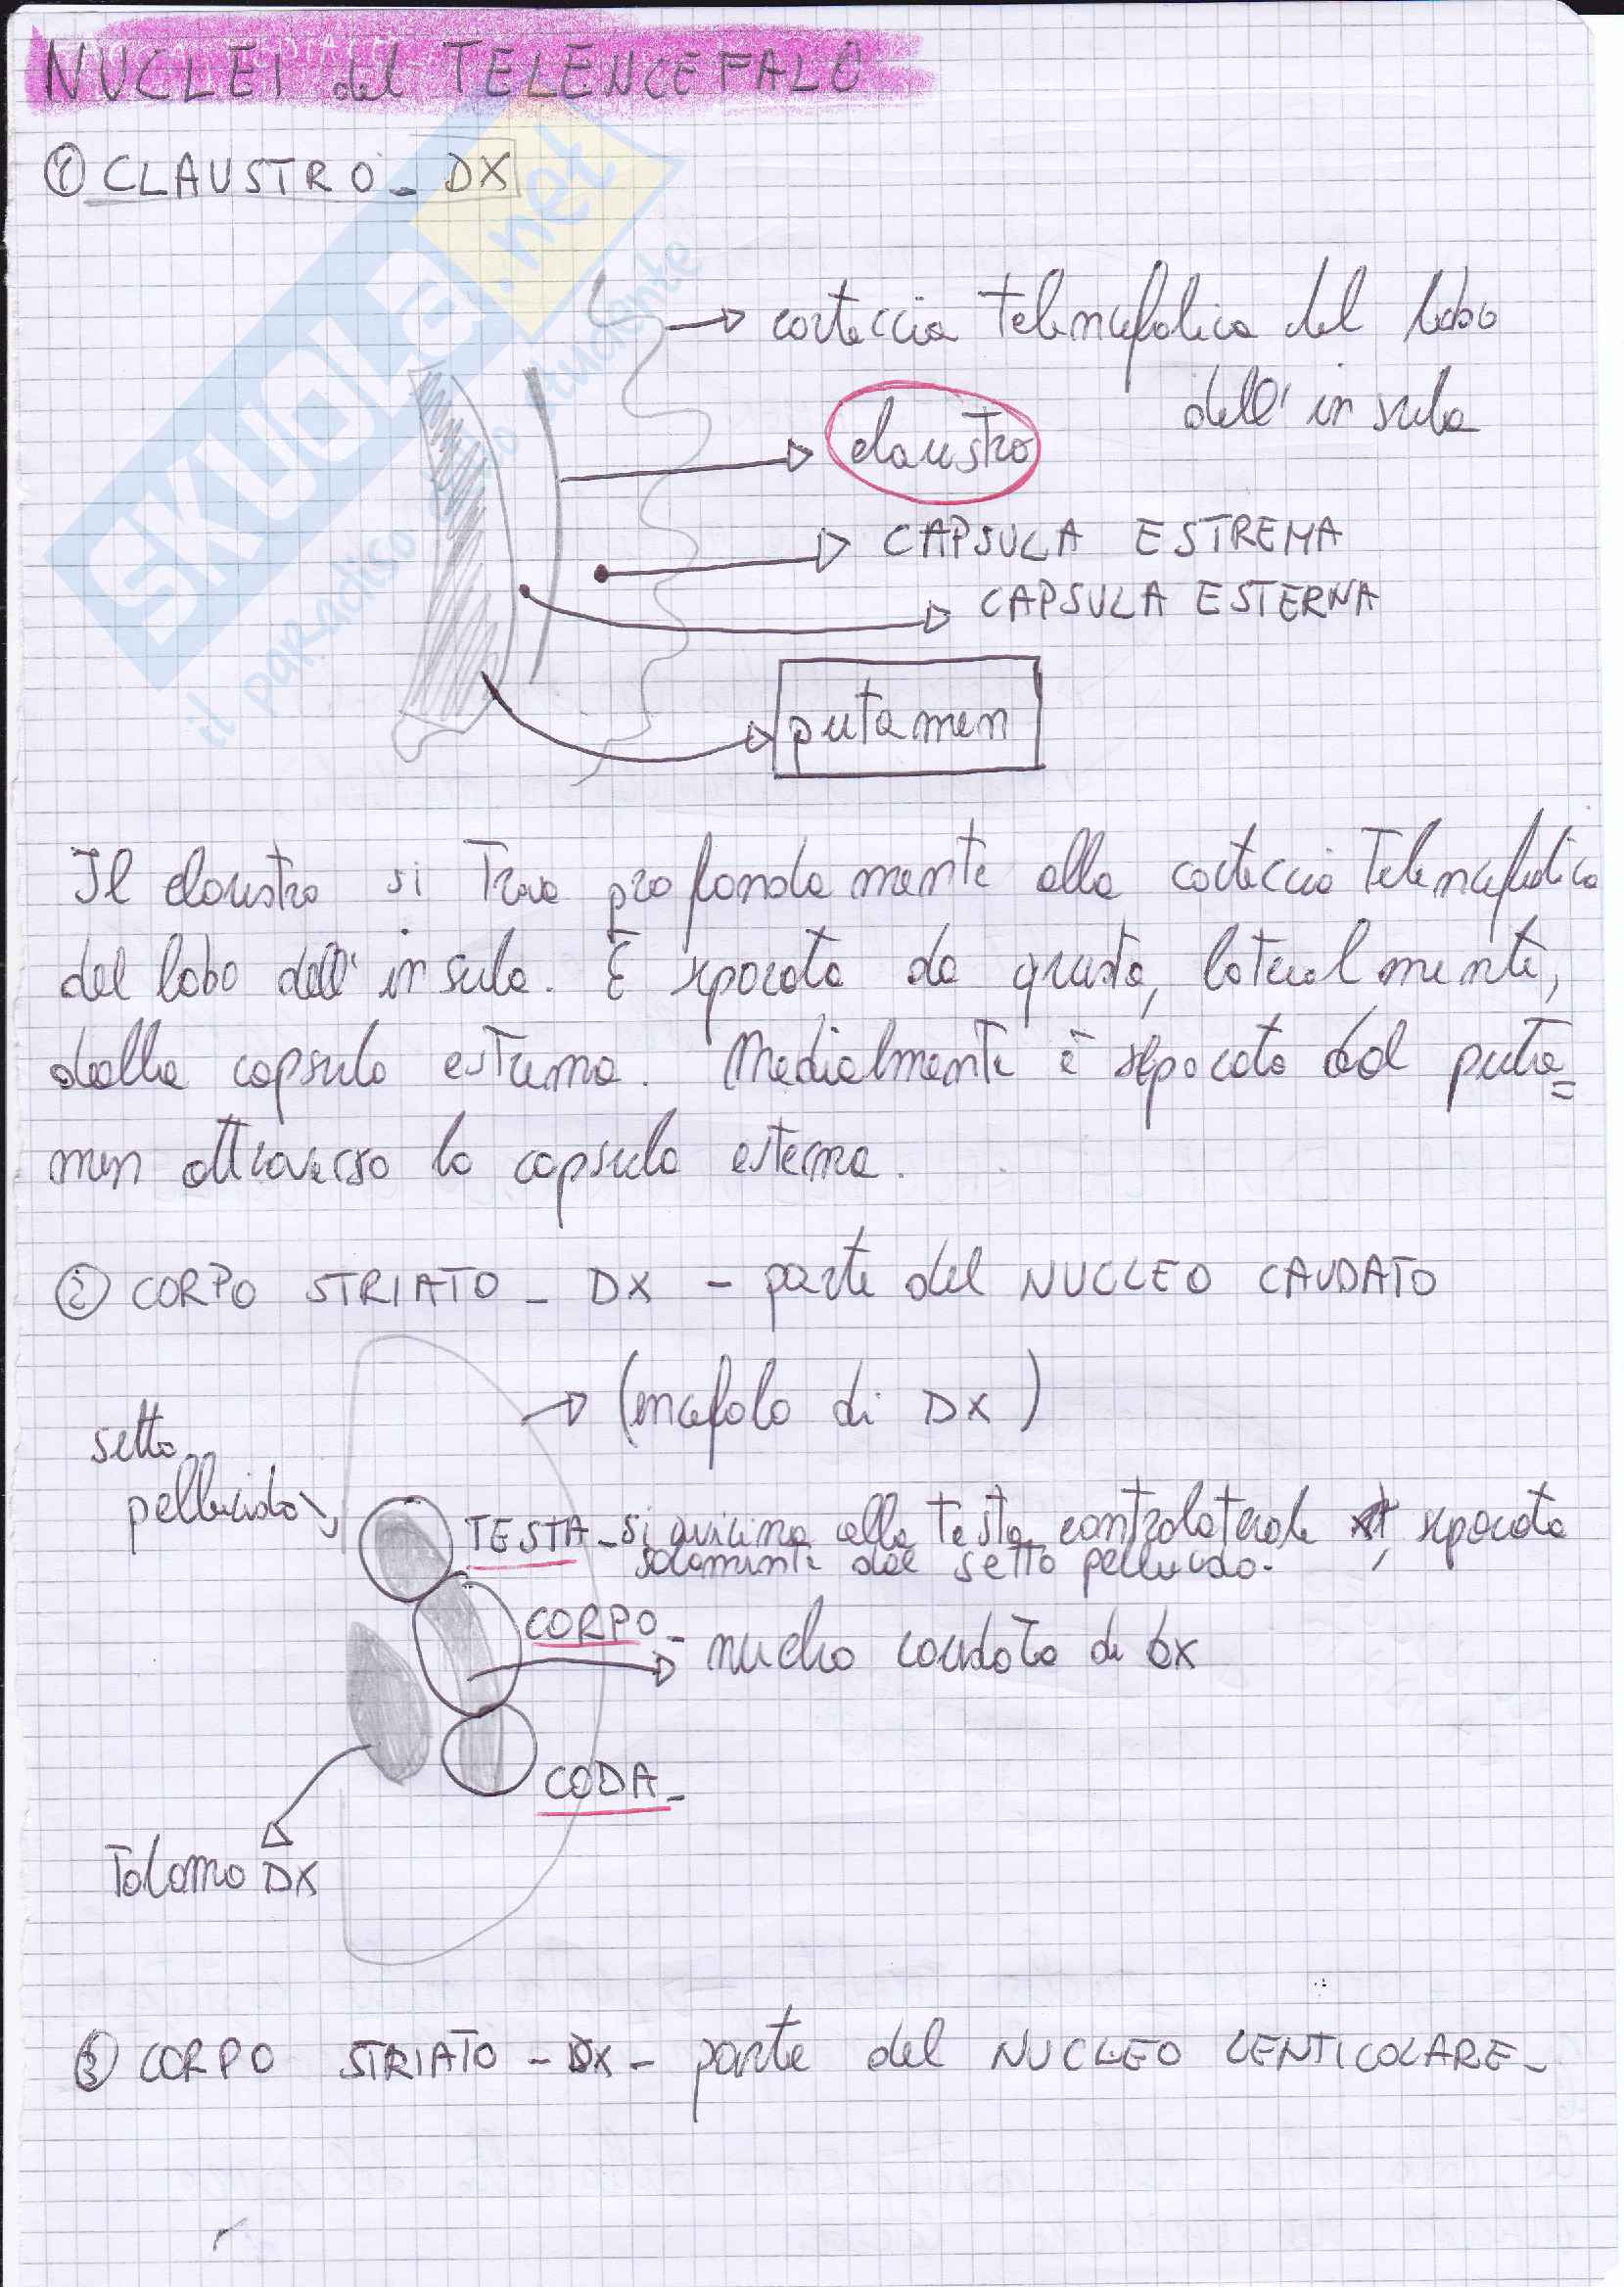 NUCLEI del TELENCEFALO
① CLAUSTRO - DX
corteccia telencefalica del lobo
dell'insula
claustro
CAPSULA ESTREMA
CAPSULA ESTERNA
putamen
Il claustro si trova profondamente alla corteccia telencefalica
del lobo dell'insula. È separato da questa, lateralmente,
dalla capsula estrema. Medialmente è separato dal puta=
men attraverso la capsula esterna.
② CORPO STRIATO - DX - parte del NUCLEO CAUDATO
(encefalo di DX)
setto
pellucido
TESTA - si avvicina alla testa controlaterale, separata
solamente dal setto pellucido.
CORPO -
nucleo caudato di dx
CODA -
Talamo DX
③ CORPO STRIATO - DX - parte del NUCLEO LENTICOLARE -
SKUOLA.net
il paradiso dello studente